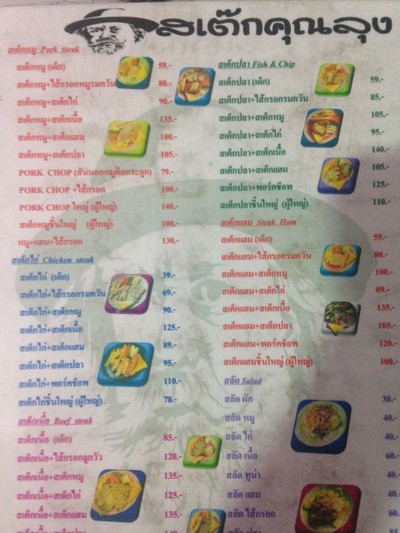 สเต๊กคุณลุง
สเต็กหมู Pork steak
สเต็กหมู (เด็ก) 59.-
สเต็กหมู+ไส้กรอกหมูรมควัน 80.-
สเต็กหมู+สเต็กไก่ 90.-
สเต็กหมู+สเต็กเนื้อ 135.-
สเต็กหมู+สเต็กแฮม 100.-
สเต็กหมู+สเต็กปลา 105.-
PORK CHOP (สันนอกหมูติดกระดูก) 79.-
PORK CHOP +ไส้กรอก 100.-
PORK CHOP ใหญ่ (ผู้ใหญ่) 140.-
สเต็กหมูชิ้นใหญ่ (ผู้ใหญ่) 100.-
หมู+แฮม+ไส้กรอก 130.-
สเต็กไก่ Chicken steak
สเต็กไก่ (เด็ก) 39.-
สเต็กไก่+ไส้กรอกรมควัน 69.-
สเต็กไก่+สเต็กหมู 90.-
สเต็กไก่+สเต็กเนื้อ 125.-
สเต็กไก่+สเต็กแฮม 89.-
สเต็กไก่+สเต็กปลา 95.-
สเต็กไก่+พอร์คช๊อพ 110.-
สเต็กไก่ชิ้นใหญ่ (ผู้ใหญ่) 78.-
สเต็กเนื้อ Beef steak
สเต็กเนื้อ (เด็ก) 85.-
สเต็กเนื้อ+ไส้กรอกลูกวัว 120.-
สเต็กเนื้อ+สเต็กหมู 135.-
สเต็กเนื้อ+สเต็กไก่ 125.-
สเต็กเนื้อ+สเต็กแฮม 135.-
สเต็กเนื้อ+สเต็กปลา 140.-
สเต็กปลา Fish & Chip
สเต็กปลา (เด็ก) 59.-
สเต็กปลา+ไส้กรอกรมควัน 85.-
สเต็กปลา+สเต็กหมู 105.-
สเต็กปลา+สเต็กไก่ 95.-
สเต็กปลา+สเต็กเนื้อ 140.-
สเต็กปลา+สเต็กแฮม 105.-
สเต็กปลา+พอร์คช๊อพ 125.-
สเต็กปลาชิ้นใหญ่ (ผู้ใหญ่) 110.-
สเต็กแฮม Steak Ham
สเต็กแฮม (เด็ก) 59.-
สเต็กแฮม+ไส้กรอกรมควัน 80.-
สเต็กแฮม+สเต็กหมู 100.-
สเต็กแฮม+สเต็กไก่ 89.-
สเต็กแฮม+สเต็กเนื้อ 135.-
สเต็กแฮม+สเต็กปลา 105.-
สเต็กแฮม+พอร์คช๊อพ 120.-
สเต็กแฮมชิ้นใหญ่ (ผู้ใหญ่) 100.-
สลัด Salad
สลัด ผัก 30.-
สลัด หมู 40.-
สลัด ไก่ 40.-
สลัด เนื้อ 60.-
สลัด ทูน่า 40.-
สลัด แฮม 40.-
สลัด ไส้กรอก 60.-
สลัด ปลา